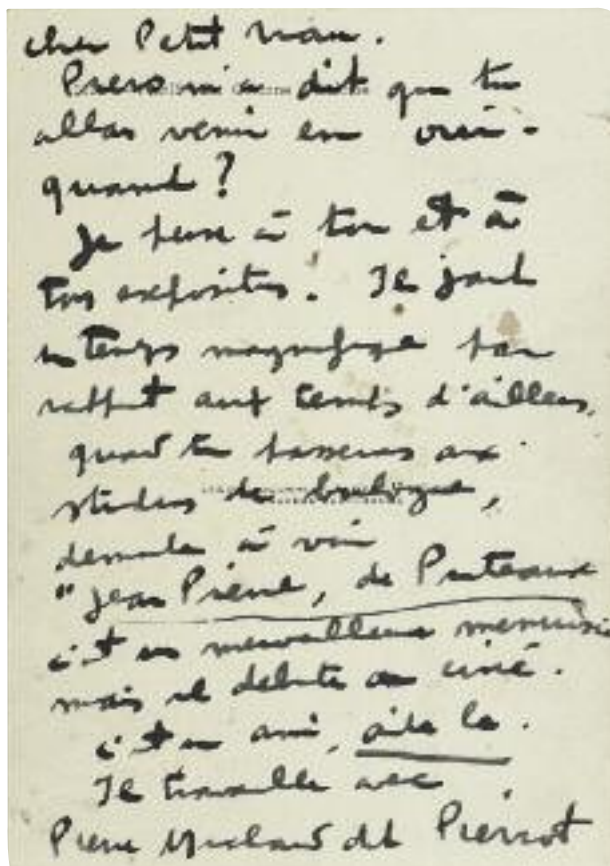 cher Petit
m'a dit que tu
allas venir en
quand ?
Je pense à toi et à
tes exposites. Il fait
un temps magnifique par
rapport aux temps d'ailleurs,
quand tu passeras aux
studios de boulogne,
demande à voir
"Jean Pierre, de Puteaux
c'est un merveilleux menuisier
mais il débute au ciné.
c'est un ami, aide le.
Il travaille avec
Pierre dit Pierrot